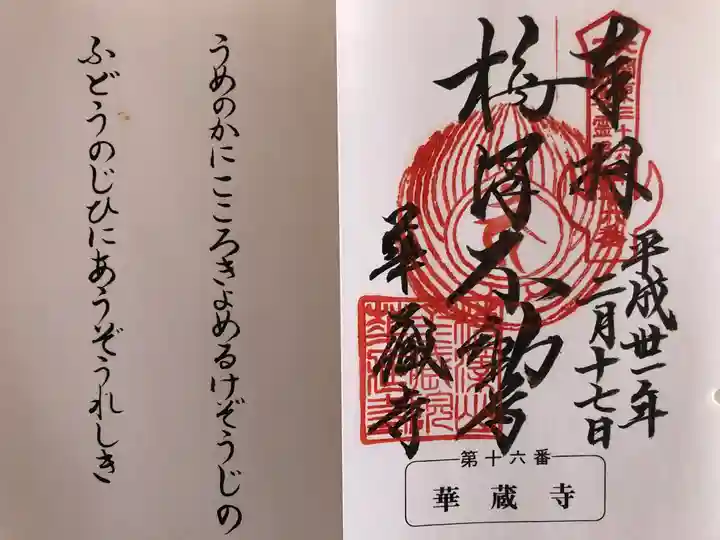 うめのかにこころきよめるけぞうじの
ふどうのじひにあうぞうれしき
奉拝
平成丗一年
二月十七日
梅澤不動尊
華蔵寺
第十六番
華蔵寺